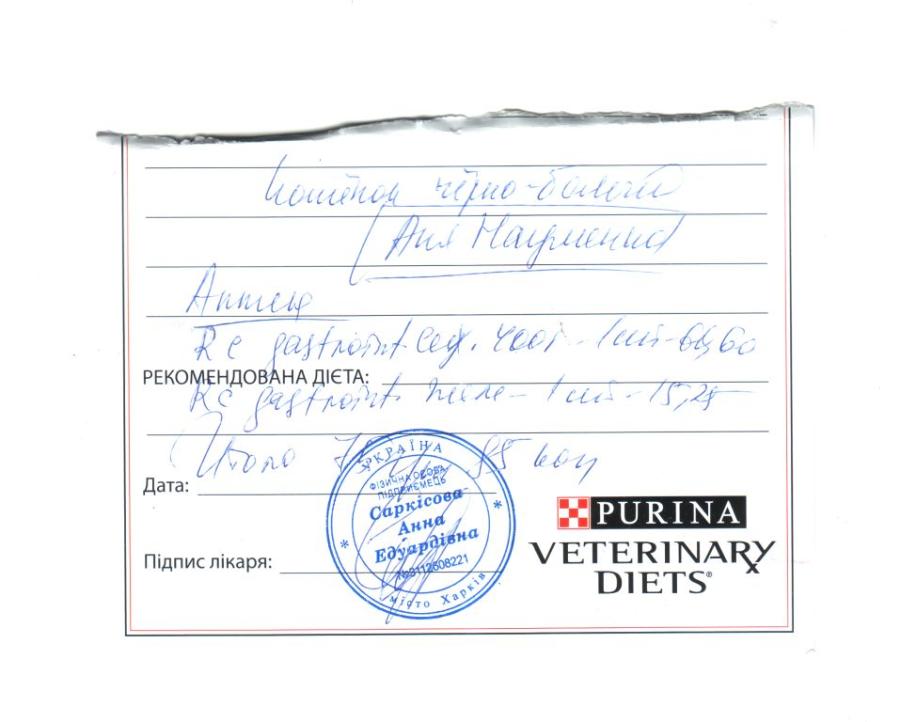 Котёнок чёрно-белый
(Аня Науменко)
Аптека
RC gastroint. сух. 400г - 1шт - 64,60
РЕКОМЕНДОВАНА ДІЄТА:
RC gastroint. желе - 1шт - 15,25
Итого 85 коп
Дата:
Підпис лікаря:
УКРАЇНА
ФІЗИЧНА ОСОБА
ПІДПРИЄМЕЦЬ
Саркісова
Анна
Едуардівна
№3112608221
місто Харків
PURINA
VETERINARY
DIETS®